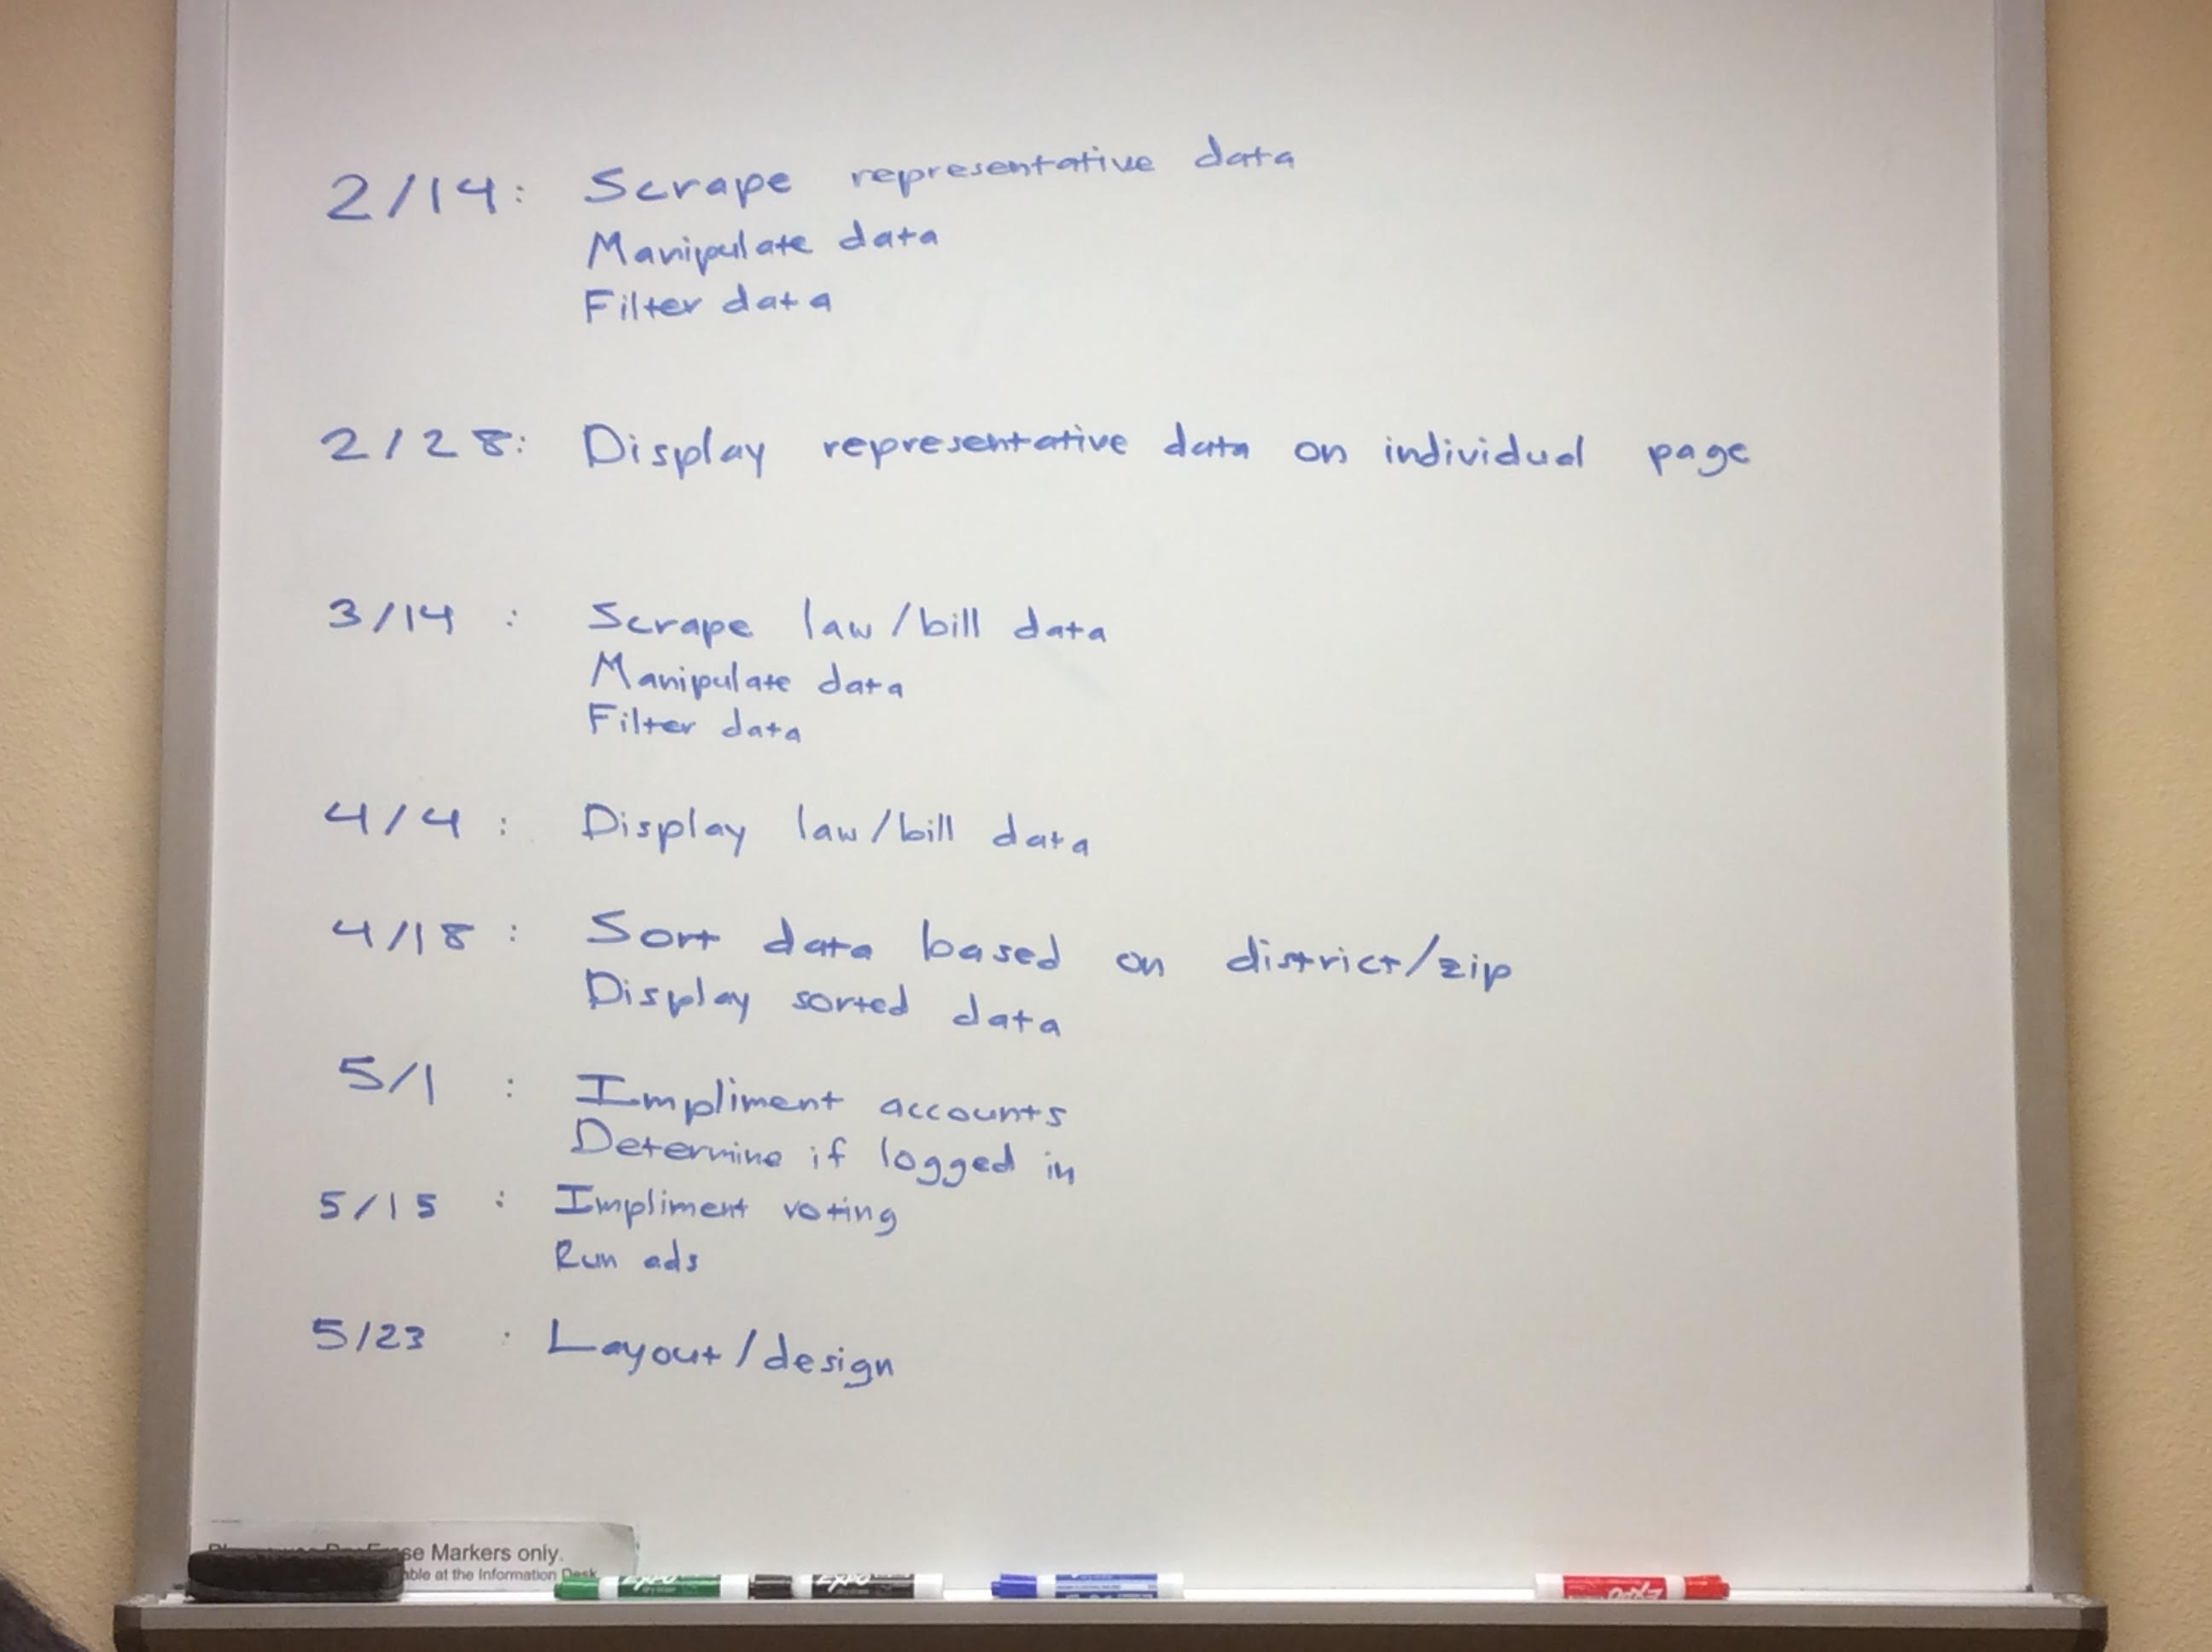 2/14: Scrape representative data
Manipulate data
Filter data
2/28: Display representative data on individual page
3/14 : Scrape law/bill data
Manipulate data
Filter data
4/4 : Display law/bill data
4/18 : Sort data based on district/zip
Display sorted data
5/1 : Impliment accounts
Determine if logged in
5/15 : Impliment voting
Run ads
5/23 : Layout/design
se Markers only.
able at the Information Desk
EXPO
EXPO
EXPO